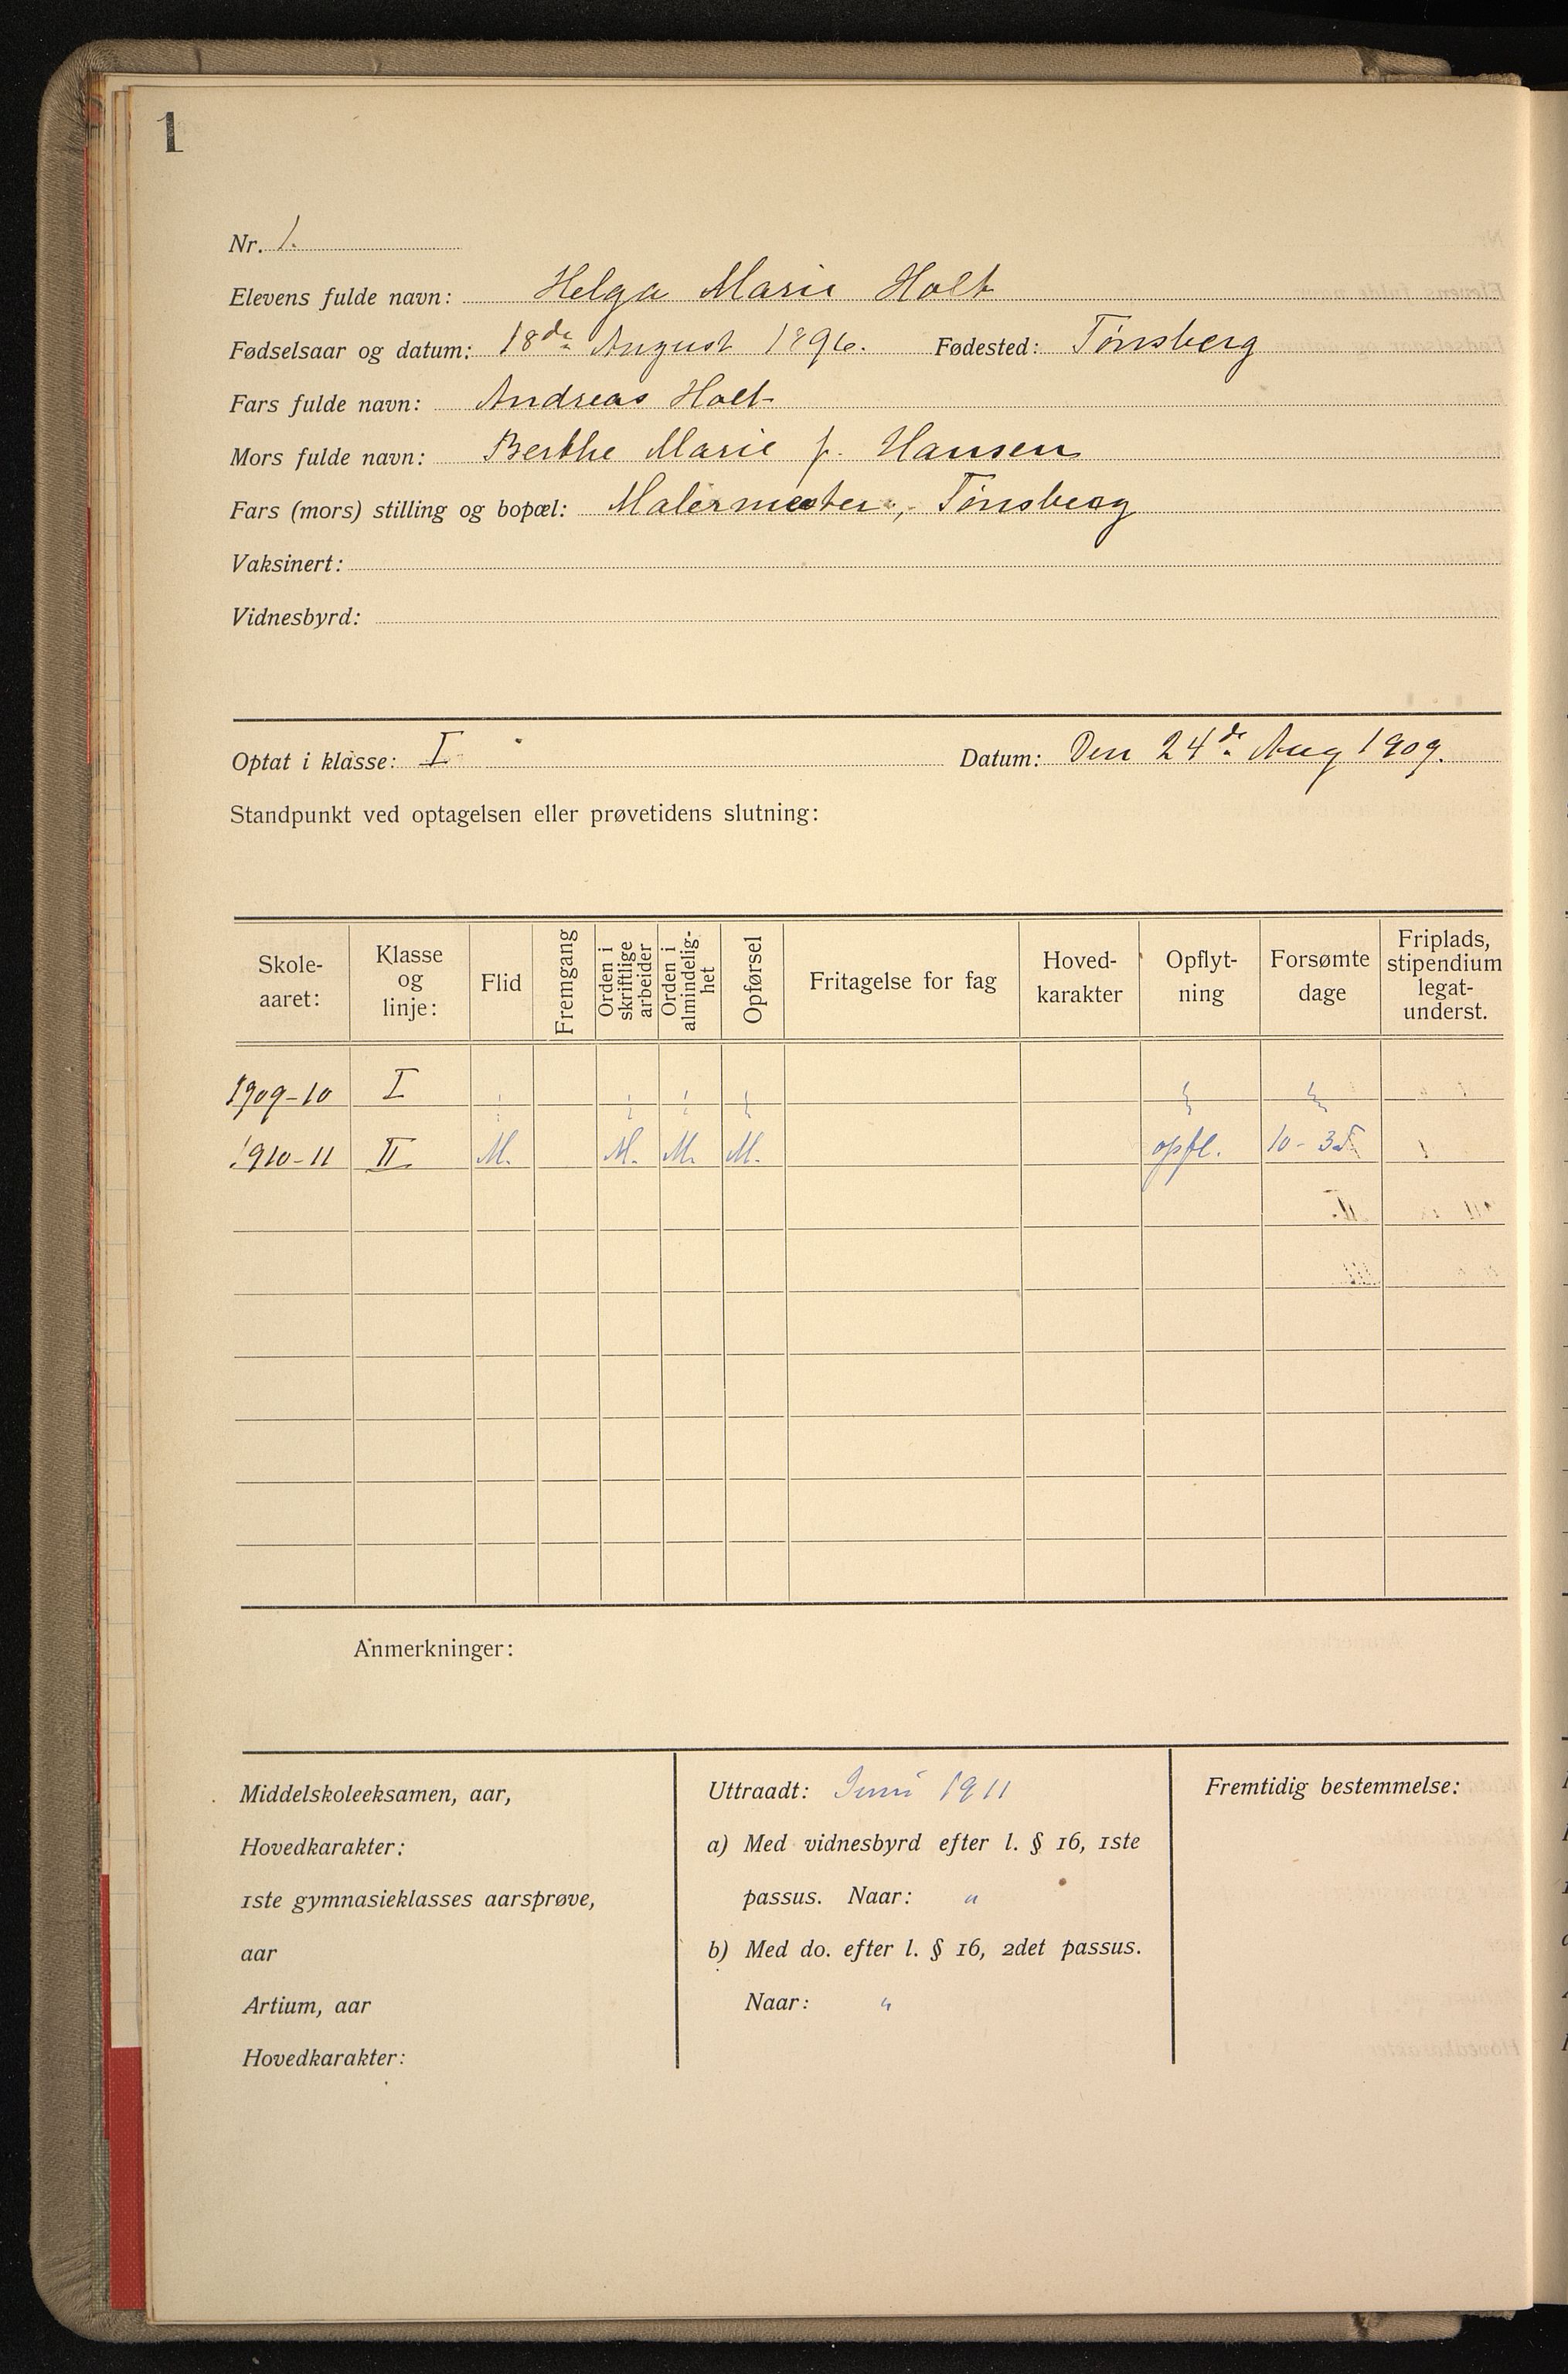 1
Nr. 1.
Elevens fulde navn: Helga Marie Holt
Fødselsaar og datum: 18de August 1896. Fødested: Tønsberg
Fars fulde navn: Andreas Holt
Mors fulde navn: Berthe Marie f. Hansen
Fars (mors) stilling og bopæl: Malermester, Tønsberg
Vaksinert:
Vidnesbyrd:
Optat i klasse: I Datum: Den 24de Aug 1909.
Standpunkt ved optagelsen eller prøvetidens slutning:
Skole-aaret: Klasse og linje: Flid Fremgang Orden i skriftlige arbeider Orden i almindelig-het Opførsel Fritagelse for fag Hoved-karakter Opflyt-ning Forsømte dage Friplads, stipendium legat-underst.
1909-10 I
1910-11 II M. M. M. M. opfl. 10-
Anmerkninger:
Middelskoleeksamen, aar,
Hovedkarakter:
1ste gymnasieklasses aarsprøve,
aar
Artium, aar
Hovedkarakter:
Uttraadt: Juni 1911
a) Med vidnesbyrd efter l. § 16, 1ste
passus. Naar: "
b) Med do. efter l. § 16, 2det passus.
Naar: "
Fremtidig bestemmelse: